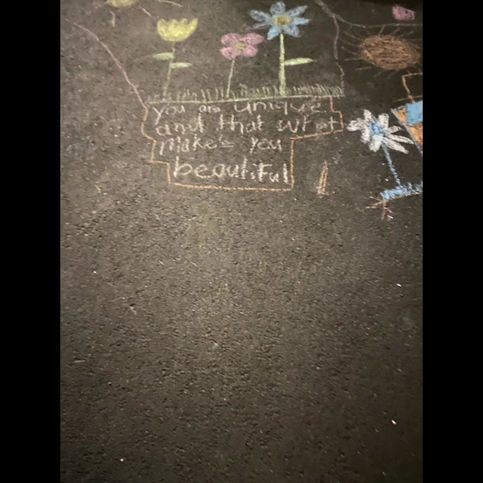 you are unique
and that what
makes you
beautiful